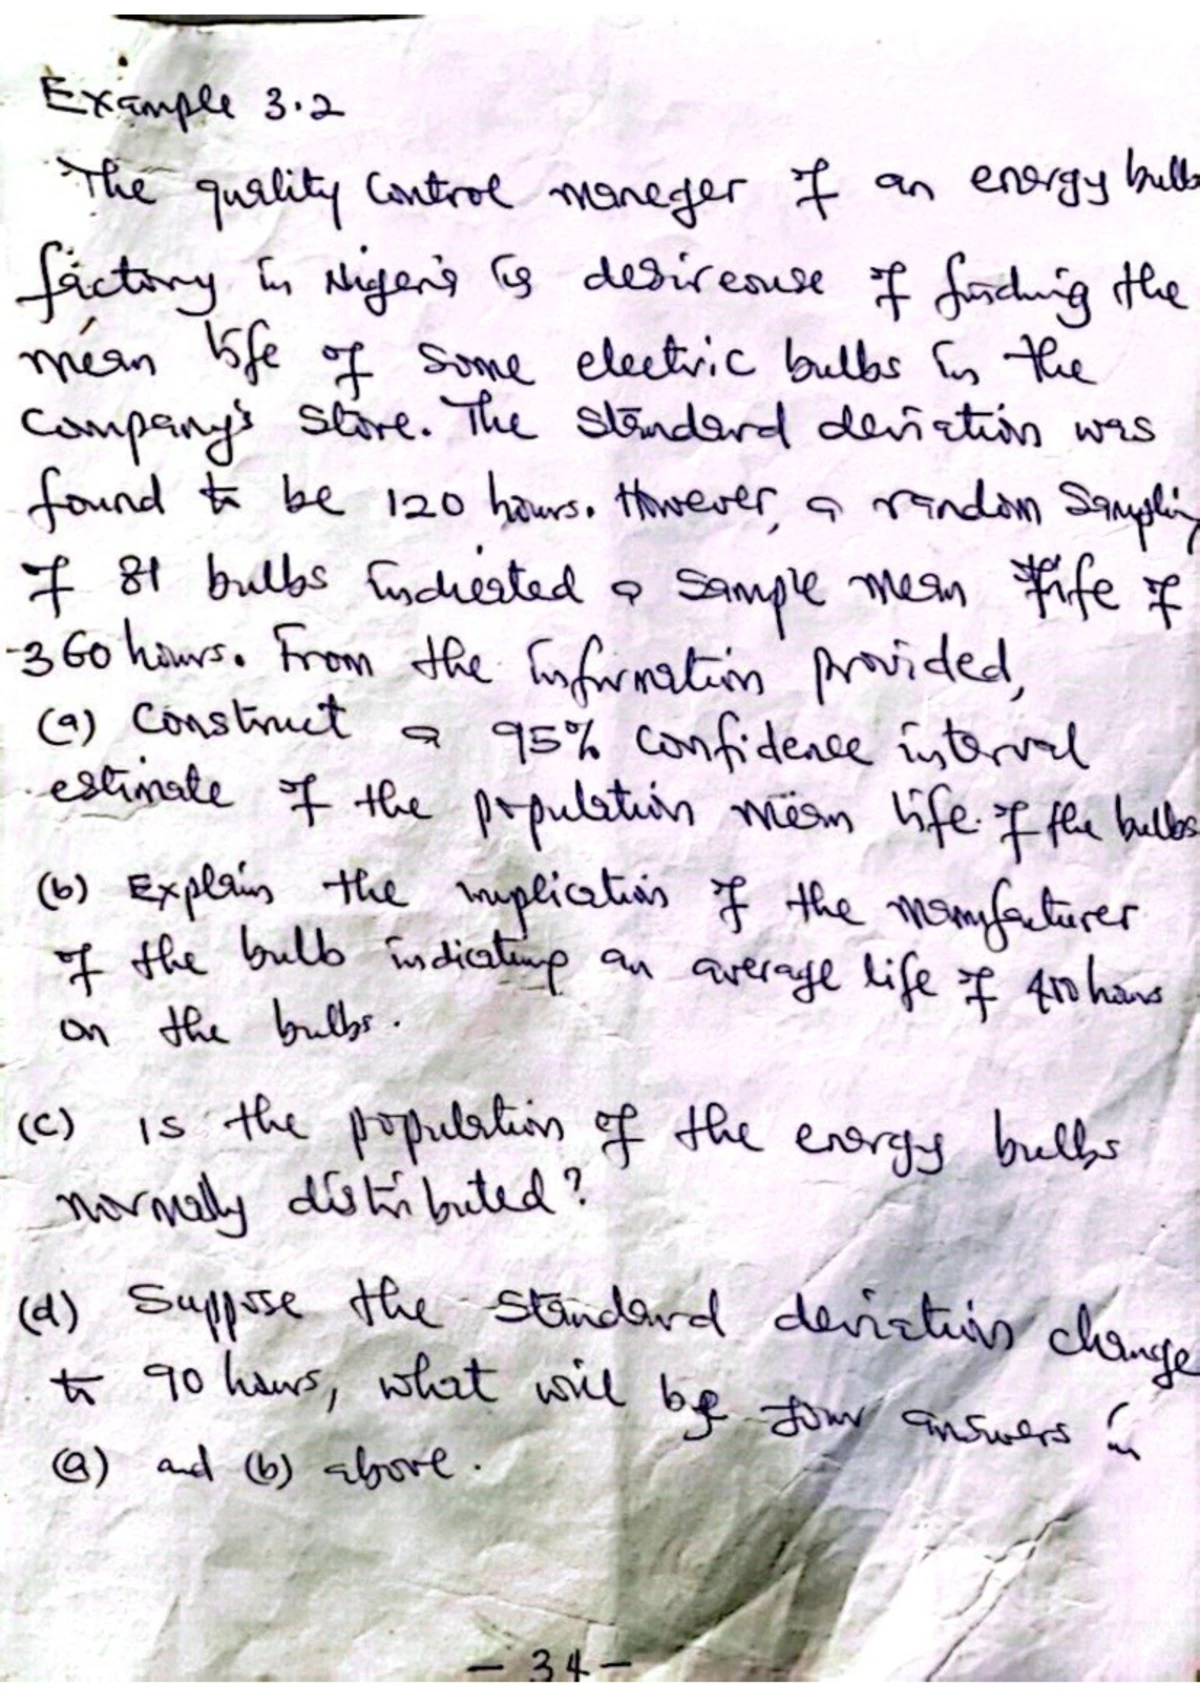 Example 3.2
The quality Control maneger of an energy bulb
factory in Nigeria is desireouse of finding the
mean life of some electric bulbs in the
Company's Store. The standard deviation was
found to be 120 hours. However, a random Sampling
of 81 bulbs indicated a sample mean life of
360 hours. From the information provided,
(a) Construct a 95% confidence interval
estimate of the population mean life of the bulbs
(b) Explain the implication of the manufacturer
of the bulb indicating an average life of 400 hours
on the bulbs.
(c) is the population of the energy bulbs
normally distributed?
(d) Suppose the standard deviation change
to 90 hours, what will be your answers in
(a) and (b) above.
- 34 -